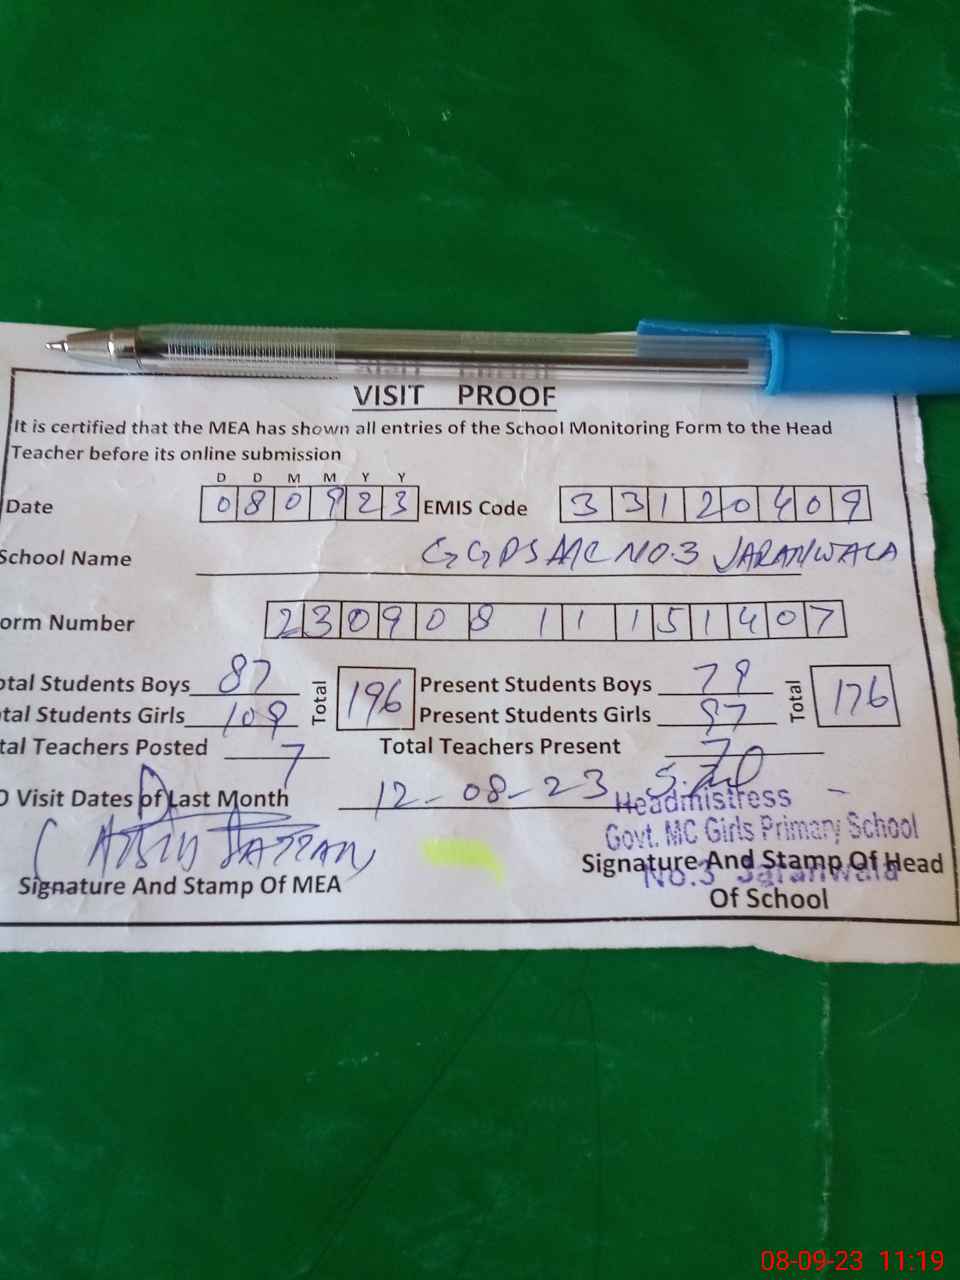 VISIT PROOF
It is certified that the MEA has shown all entries of the School Monitoring Form to the Head
Teacher before its online submission
D D M M Y Y
Date 0 8 0 9 2 3 EMIS Code 3 3 1 2 0 4 0 9
School Name GGPS MC NO.3 JARANWALA
orm Number 2 3 0 9 0 8 1 1 1 5 1 4 0 7
otal Students Boys 87 Total 196 Present Students Boys 79 Total 176
tal Students Girls 109 Present Students Girls 97
tal Teachers Posted 7 Total Teachers Present 7
O Visit Dates of Last Month 12-08-23
Headmistress
Govt. MC Girls Primary School
No.3 Jaranwala
Signature And Stamp Of MEA
Signature And Stamp Of Head
Of School
08-09-23 11:19